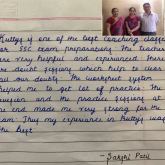 Kuttys is one of the best coaching classes
for SSC exam preparations. The teachers
are very helpful and experienced. There
are doubt sessions which help to clear
all our doubts. The worksheet system
helped me to get lot of practice. The
revision and the practice sessions at
the end made me very strong for the
exam. This my experience in Kuttys was
the best
- Sakshi Patil